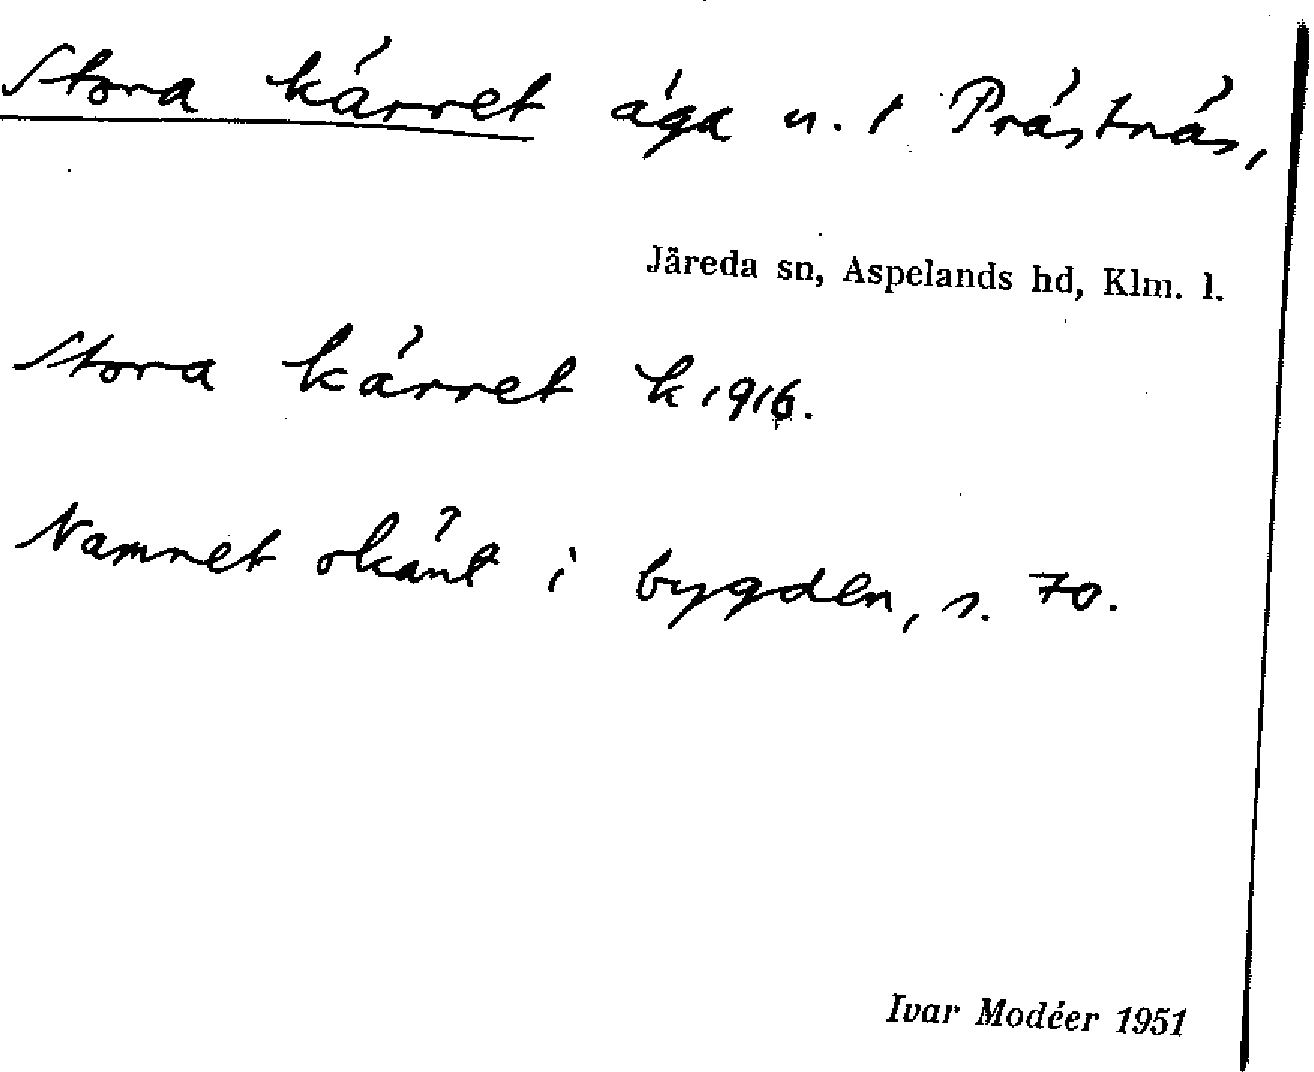 Stora kärret äga u. 1 Prästnäs,
Järeda sn, Aspelands hd, Klm. l.
Stora kärret k 1916.
Namnet okänt i bygden, s. 70.
Ivar Modéer 1951